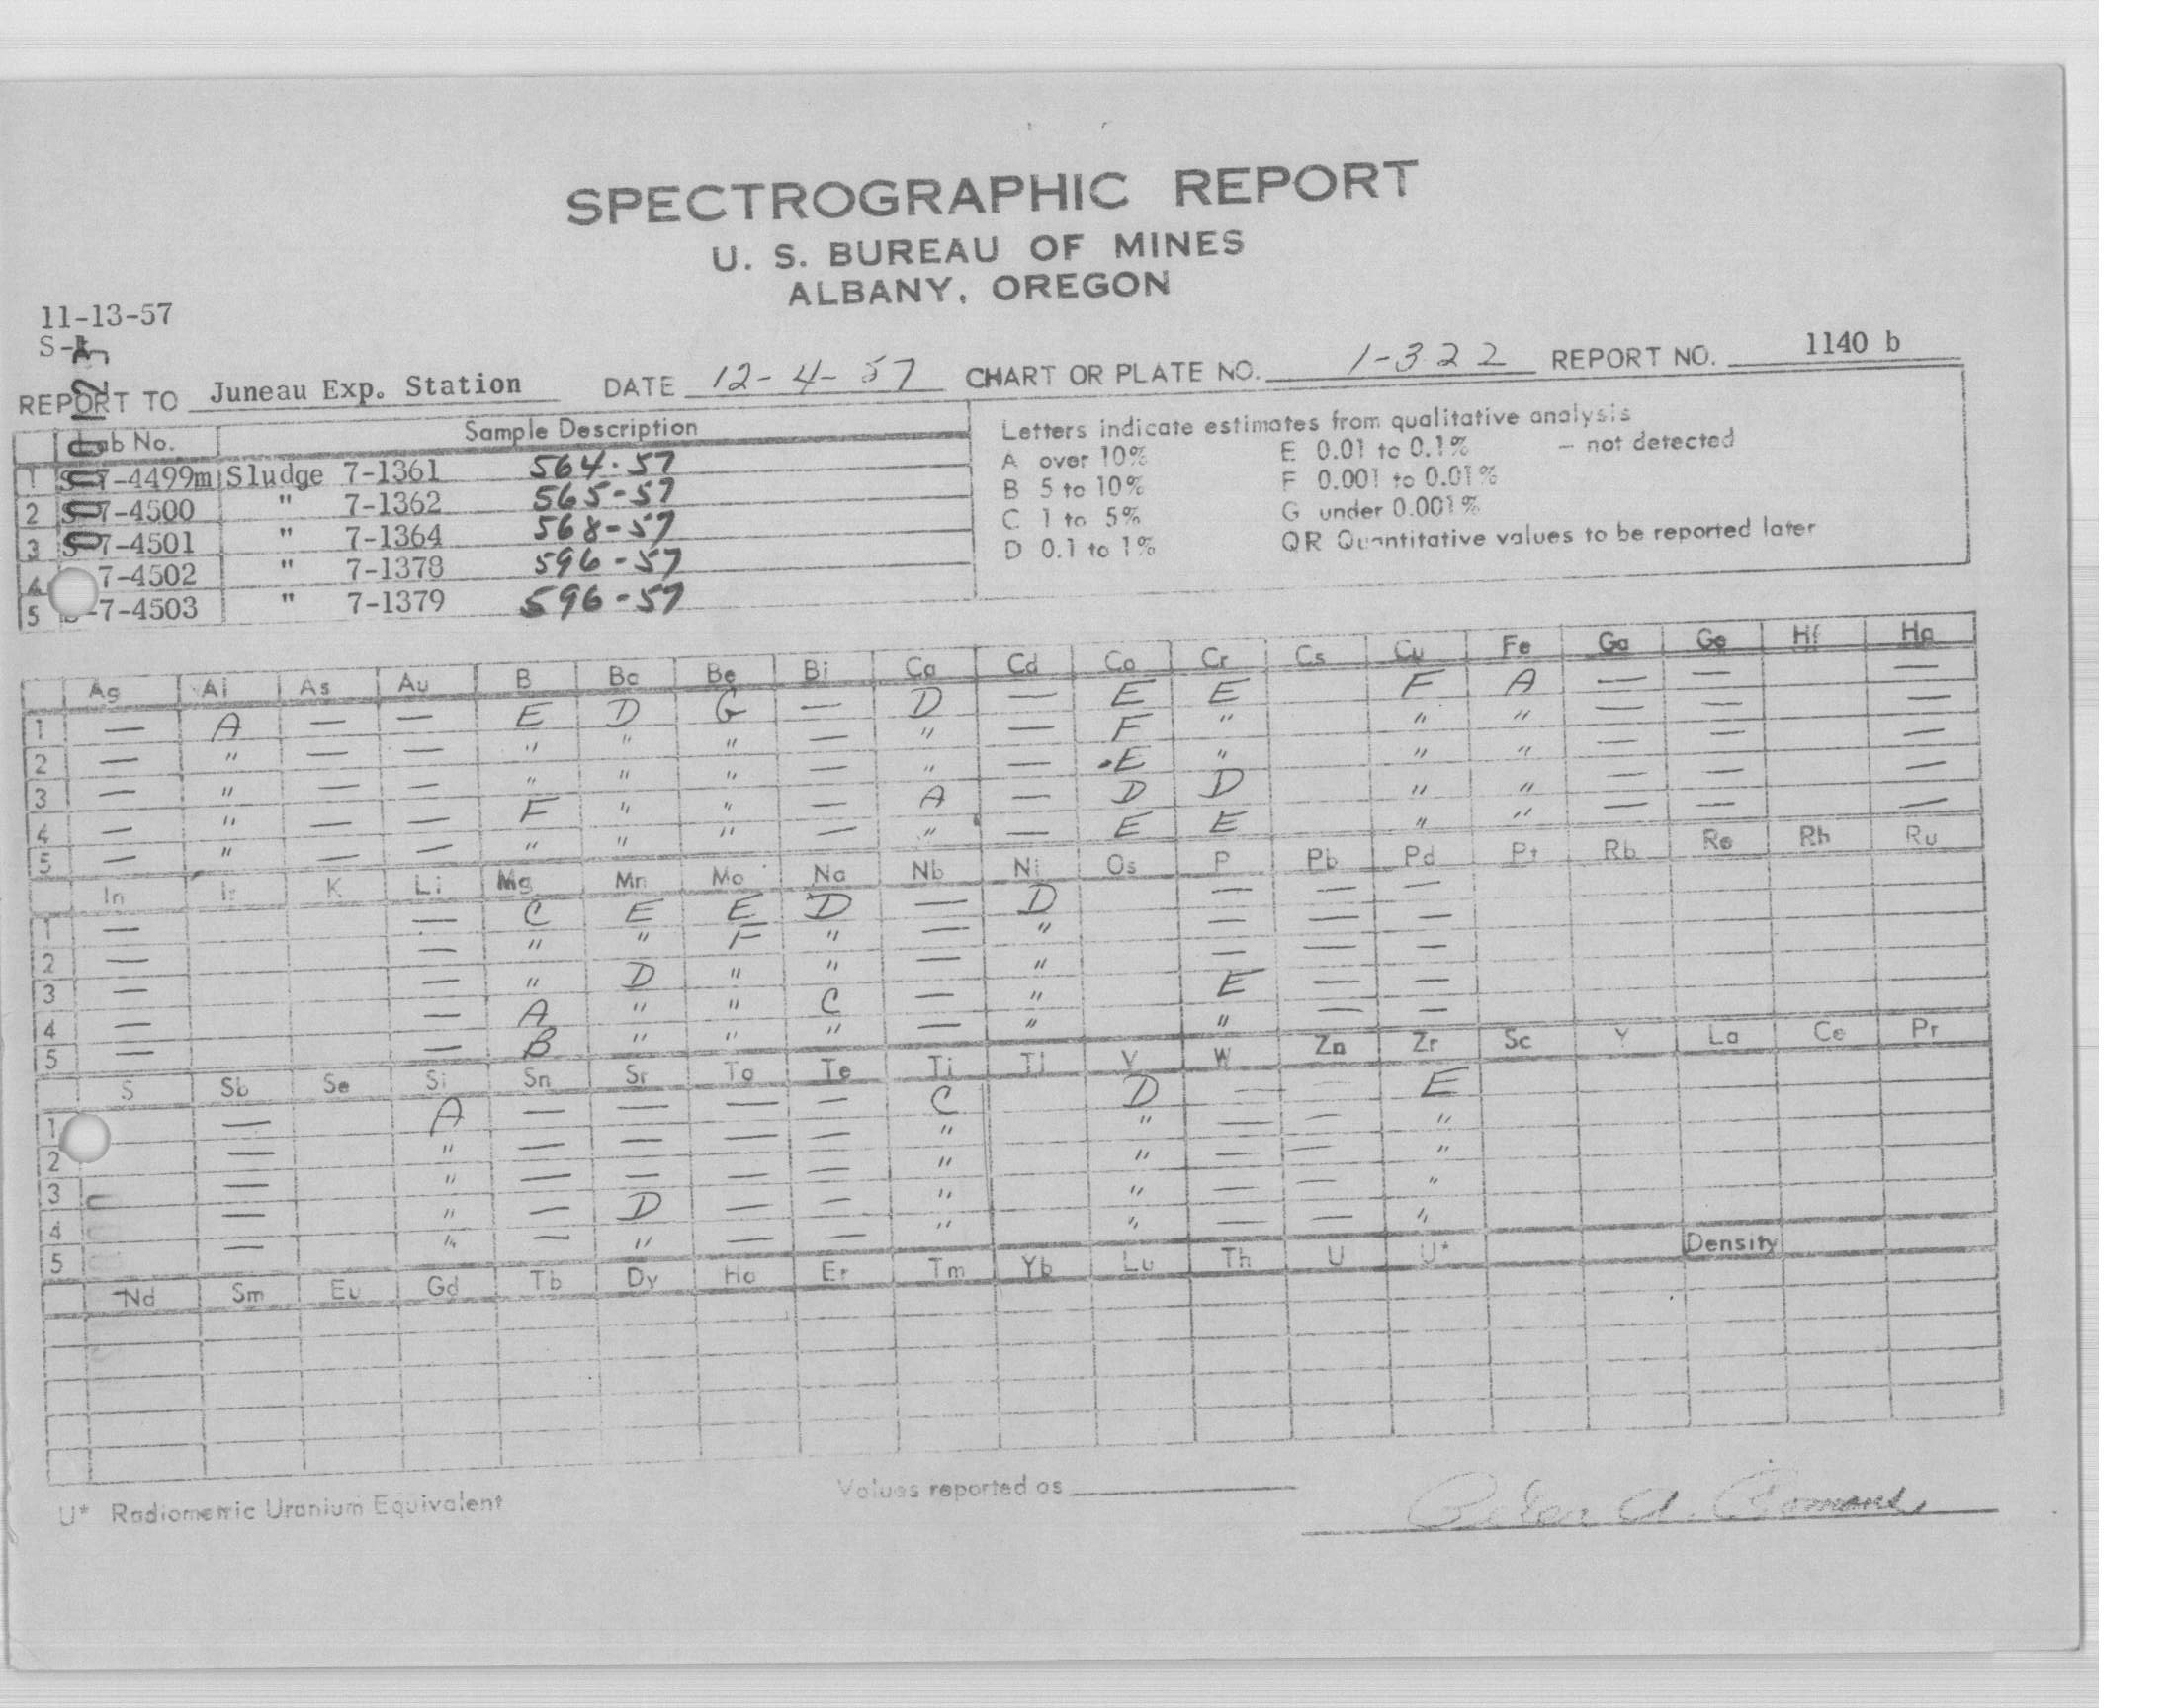 SPECTROGRAPHIC REPORT
U. S. BUREAU OF MINES
ALBANY, OREGON
11-13-57
REPORT TO Juneau Exp. Station DATE 12-4-57 CHART OR PLATE NO. 1-322 REPORT NO. 1140 b
Lab No. Sample Description
1 S-7-4499m Sludge 7-1361 564-57
2 S-7-4500 " 7-1362 565-57
3 S-7-4501 " 7-1364 568-57
4 7-4502 " 7-1378 596-57
5 -7-4503 " 7-1379 596-57
Letters indicate estimates from qualitative analysis
A over 10% E 0.01 to 0.1% – not detected
B 5 to 10% F 0.001 to 0.01%
C 1 to 5% G under 0.001%
D 0.1 to 1% QR Quantitative values to be reported later
Ag Al As Au B Ba Be Bi Ca Cd Co Cr Cs Cu Fe Ga Ge Hf Hg
1 — A — — E D G — D — E E F A — — —
2 — " — — " " " — " — F " " " — — —
3 — " — — " " " — " — E " " " — — —
4 — " — — F " " — A — D D " " — — —
5 — " — — " " " — " — E E " " — — —
In Ir K Li Mg Mn Mo Na Nb Ni Os P Pb Pd Pt Rb Re Rh Ru
1 — — C E E D — D — — —
2 — — " " F " — " — — —
3 — — " D " " " — — —
4 — — A " " C — " E — —
5 — — B " " " — " " — —
S Sb Se Si Sn Sr Ta Te Ti Tl V W Zn Zr Sc Y La Ce Pr
1 — A — — — — C D — — E
2 — " — — — — " " — — "
3 — " — — — — " " — — "
4 — " — D — — " " — — "
5 — " — " — — " " — — "
Nd Sm Eu Gd Tb Dy Ho Er Tm Yb Lu Th U U* Density
U* Radiometric Uranium Equivalent Values reported as